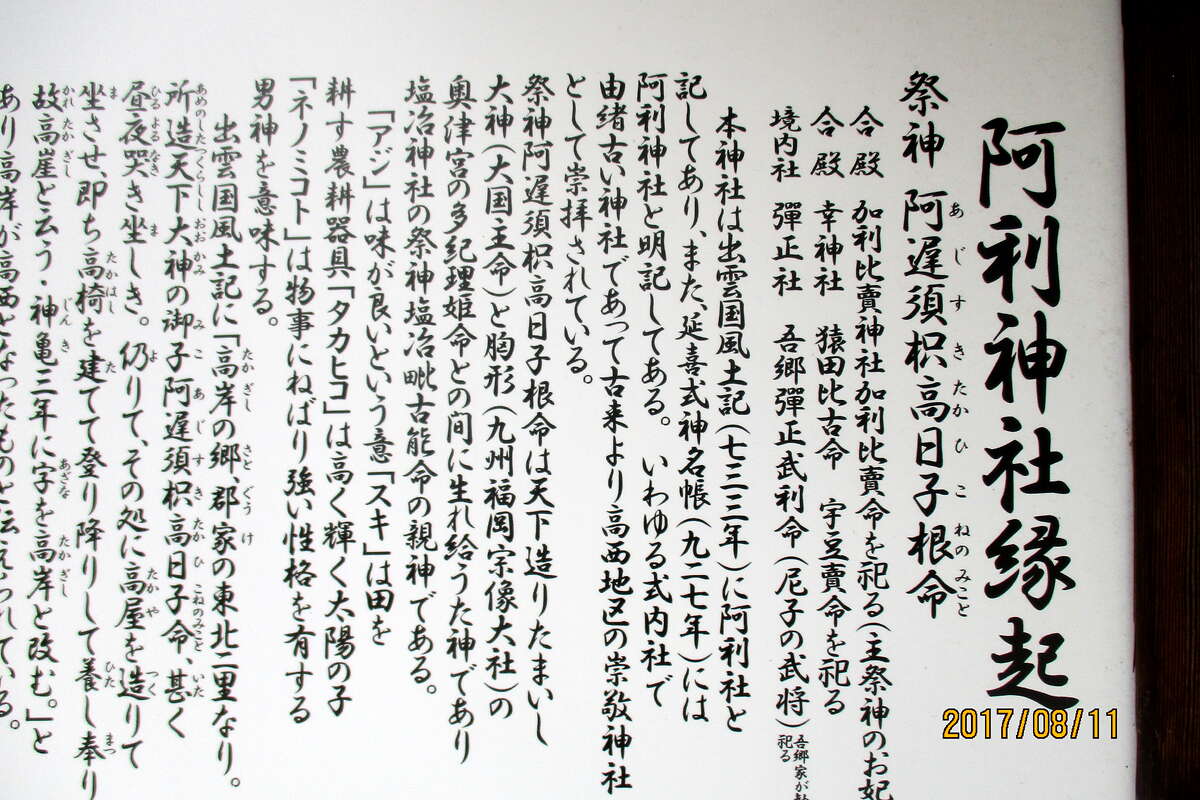 阿利神社縁起
祭神 阿遅須枳高日子根命
あじすきたかひこねのみこと
合殿 加利比賣神社加利比賣命を祀る(主祭神のお妃
合殿 幸神社 猿田比古命 宇豆賣命を祀る
境内社 彈正社 吾郷彈正武利命(尼子の武将)
吾郷家が
祀る
本神社は出雲国風土記(七三三年)に阿利社と
記してあり、また、延喜式神名帳(九二七年)には
阿利神社と明記してある。いわゆる式内社で
由緒古い神社であって古来より高西地区の崇敬神社
として崇拝されている。
祭神阿遅須枳高日子根命は天下造りたまいし
大神(大国主命)と胸形(九州福岡宗像大社)の
奥津宮の多紀理姫命との間に生れ給うた神であり
塩冶神社の祭神塩冶毗古能命の親神である。
「アジ」は味が良いという意「スキ」は田を
耕す農耕器具「タカヒコ」は高く輝く太陽の子
「ネノミコト」は物事にねばり強い性格を有する
男神を意味する。
出雲国風土記に「高岸の郷、郡家の東北二里なり。
たかぎし さと ぐうけ
所造天下大神の御子阿遅須枳高日子命、甚く
あめのしたつくらしし おおかみ みこ あじすき たかひこねのみこと いた
昼夜哭き坐しき。仍りて、その処に高屋を造りて
ひるよるなき ま よ たかや つく
坐させ、即ち高椅を建てて登り降りして養し奉り
ま たかはし た ひた まつ
故高崖と云う・神亀三年に字を高岸と改む。」と
かれたかぎし じんき あざな たかぎし
あり高岸が高西となったものと伝えられている。
2017/08/11